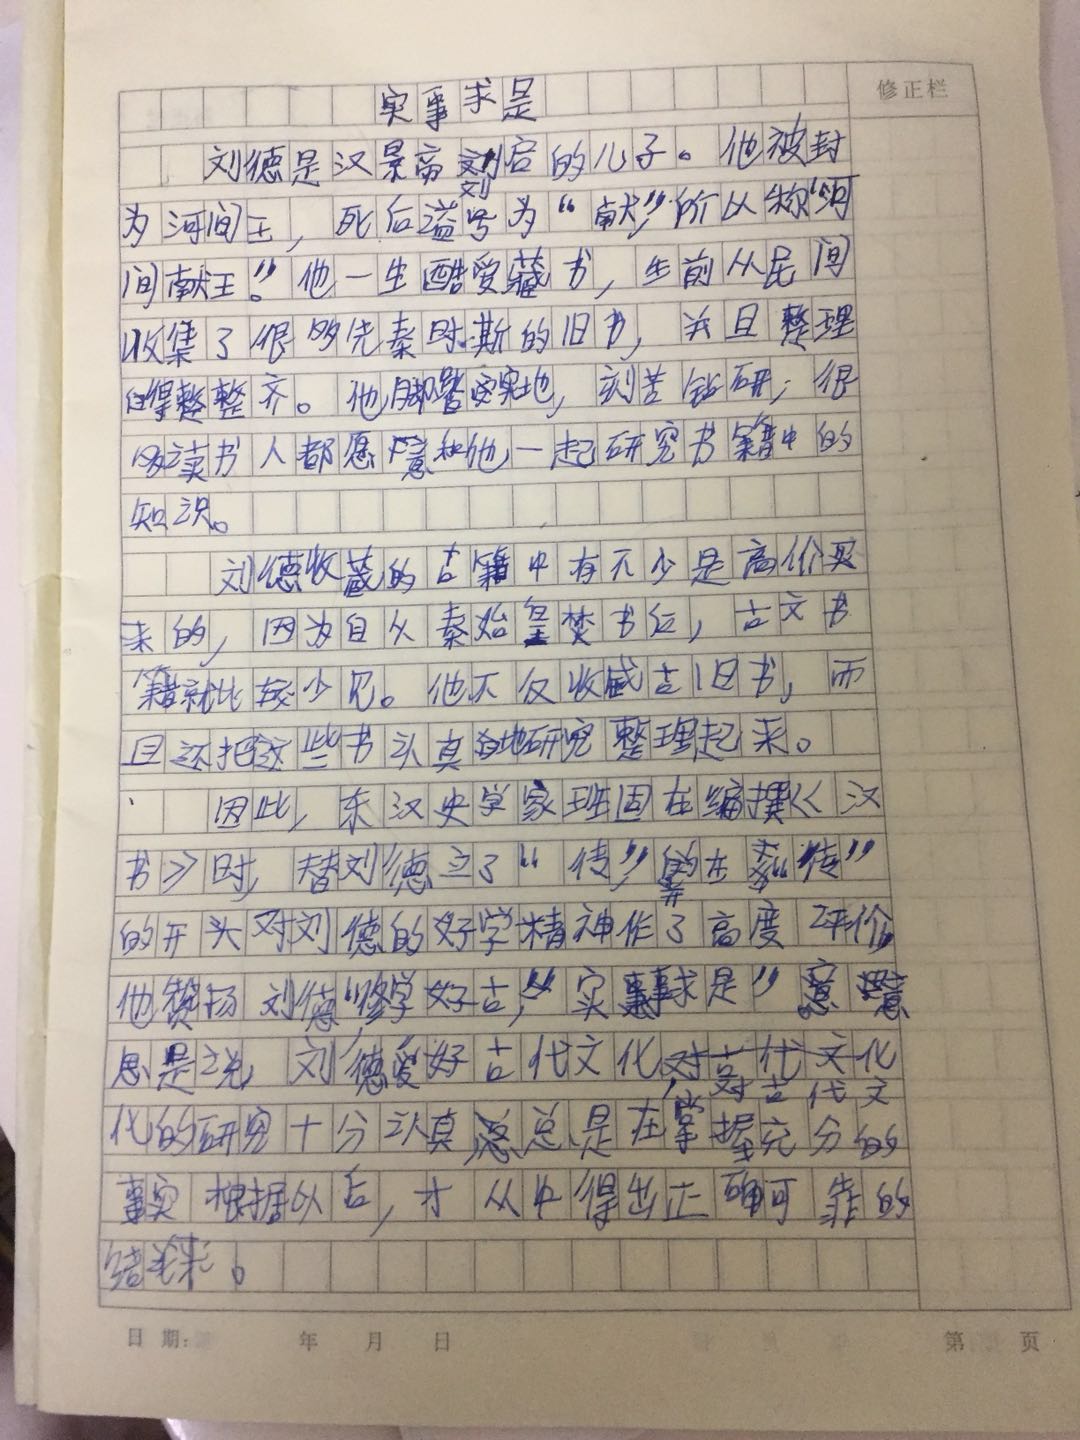 实事求是
修正栏
刘德是汉景帝刘启的儿子。他被封
为河间王，死后谥号为“献”，所以称“河
间献王。”他一生酷爱藏书，生前从民间
收集了很多先秦时期的旧书，并且整理
得整整齐。他脚踏实地，刻苦钻研，很
多读书人都愿意和他一起研究书籍中的
知识。
刘德收藏的古籍中有不少是高价买
来的，因为自从秦始皇焚书后，古文书
籍就比较少见。他不仅收藏古旧书，而
且还把这些书认真地研究整理起来。
因此，东汉史学家班固在编撰《汉
书》时，替刘德立了“传”，并在“传”
的开头对刘德的好学精神作了高度评价，
他赞扬刘德“修学好古，”“实事求是”意
思是说，刘德爱好古代文化，对古代文
化的研究十分认真，总是在掌握充分的
事实根据以后，才从中得出正确可靠的
结来。
日期： 年 月 日
第 页